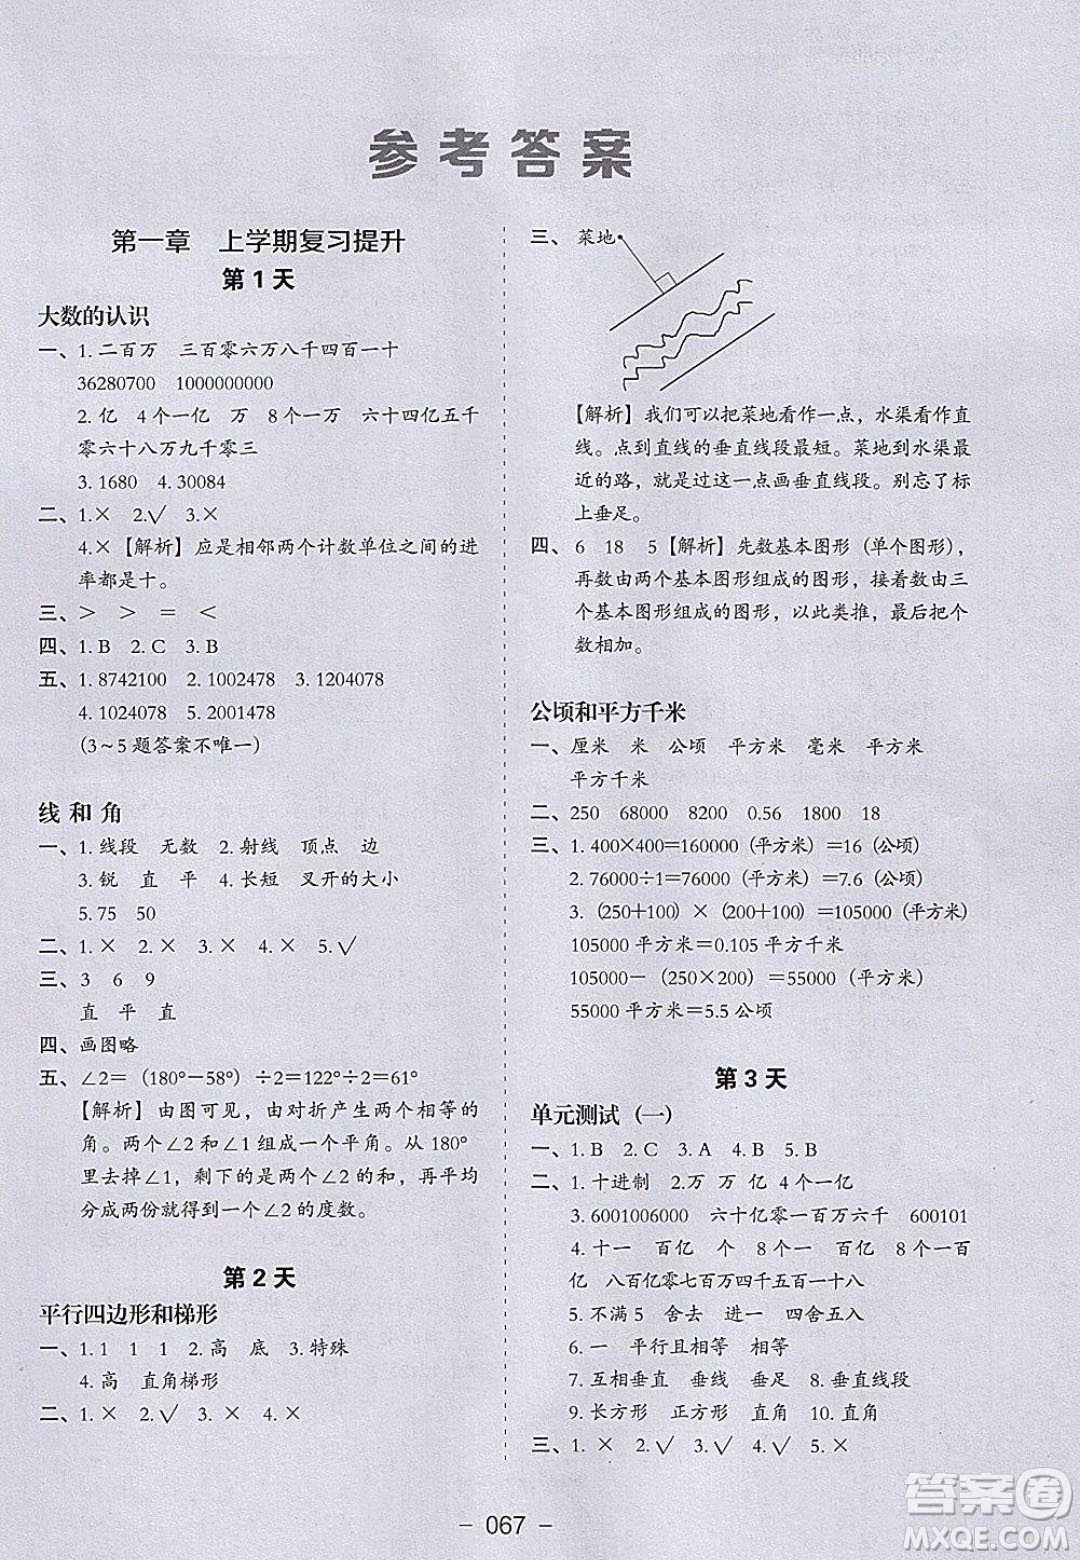 参考答案
第一章 上学期复习提升
第1天
大数的认识
一、1.二百万 三百零六万八千四百一十
36280700 1000000000
2.亿 4个一亿 万 8个一万 六十四亿五千
零六十八万九千零三
3.1680 4.30084
二、1.× 2.√ 3.×
4.×【解析】应是相邻两个计数单位之间的进
率都是十。
三、＞ ＞ ＝ ＜
四、1.B 2.C 3.B
五、1.8742100 2.1002478 3.1204078
4.1024078 5.2001478
(3～5题答案不唯一)
线和角
一、1.线段 无数 2.射线 顶点 边
3.锐 直 平 4.长短 叉开的大小
5.75 50
二、1.× 2.× 3.× 4.× 5.√
三、3 6 9
直 平 直
四、画图略
五、∠2＝（180°－58°）÷2＝122°÷2＝61°
【解析】由图可见，由对折产生两个相等的
角。两个∠2和∠1组成一个平角。从180°
里去掉∠1，剩下的是两个∠2的和，再平均
分成两份就得到一个∠2的度数。
第2天
平行四边形和梯形
一、1.1 1 1 2.高 底 3.特殊
4.高 直角梯形
二、1.× 2.√ 3.× 4.×
三、菜地
【解析】我们可以把菜地看作一点，水渠看作直
线。点到直线的垂直线段最短。菜地到水渠最
近的路，就是过这一点画垂直线段。别忘了标
上垂足。
四、6 18 5【解析】先数基本图形（单个图形），
再数由两个基本图形组成的图形，接着数由三
个基本图形组成的图形，以此类推，最后把个
数相加。
公顷和平方千米
一、厘米 米 公顷 平方米 毫米 平方米
平方千米
二、250 68000 8200 0.56 1800 18
三、1.400×400＝160000（平方米）＝16（公顷）
2.76000÷1＝76000（平方米）＝7.6（公顷）
3.（250＋100）×（200＋100）＝105000（平方米）
105000平方米＝0.105平方千米
105000－（250×200）＝55000（平方米）
55000平方米＝5.5公顷
第3天
单元测试（一）
一、1.B 2.C 3.A 4.B 5.B
二、1.十进制 2.万 万 亿 4个一亿
3.6001006000 六十亿零一百万六千 600101
4.十一 百亿 个 8个一百万 8个一百
亿 八百亿零七百万四千五百一十八
5.不满5 舍去 进一 四舍五入
6.一 平行且相等 相等
7.互相垂直 垂线 垂足 8.垂直线段
9.长方形 正方形 直角 10.直角
三、1.× 2.√ 3.√ 4.√ 5.√
－067－
答案圈
MXQE.COM